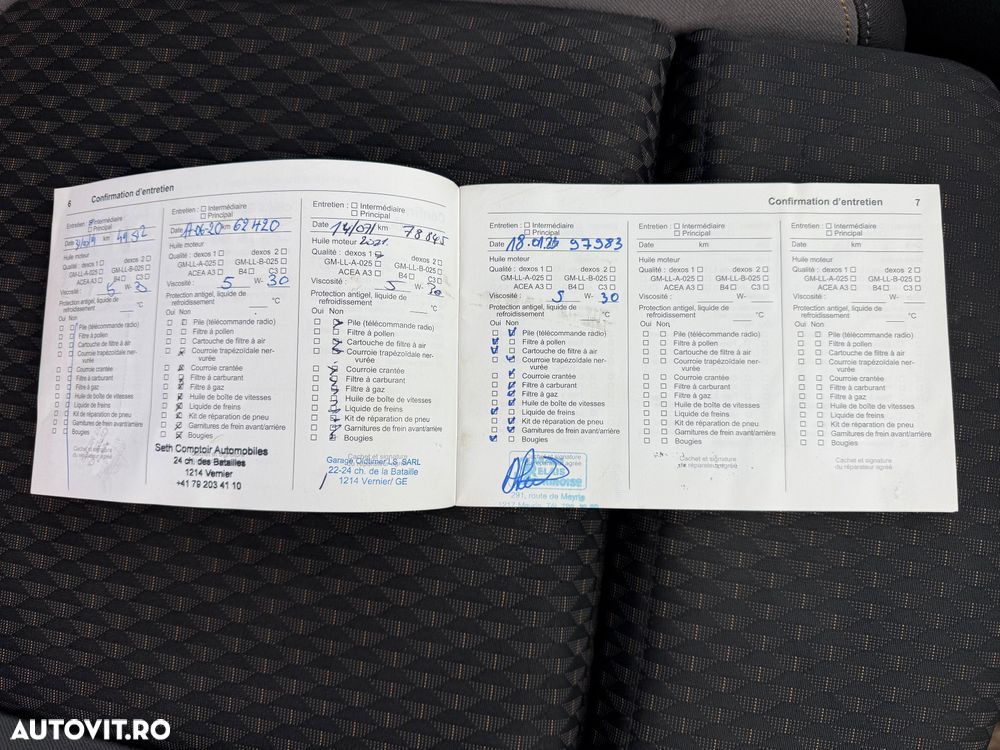 6 Confirmation d'entretien
Entretien : Intermédiaire
Principal
Date km
Huile moteur
Qualité : dexos 1 dexos 2
GM-LL-A-025 GM-LL-B-025
ACEA A3 B4 C3
Viscosité : 5 W-
Protection antigel, liquide de
refroidissement °C
Oui Non
Pile (télécommande radio)
Filtre à pollen
Cartouche de filtre à air
Courroie trapézoïdale ner-
vurée
Courroie crantée
Filtre à carburant
Filtre à gaz
Huile de boîte de vitesses
Liquide de freins
Kit de réparation de pneu
Garnitures de frein avant/arrière
Bougies
Entretien : Intermédiaire
Principal
Date km 62420
Huile moteur
Qualité : dexos 1 dexos 2
GM-LL-A-025 GM-LL-B-025
ACEA A3 B4 C3
Viscosité : 5 W- 30
Protection antigel, liquide de
refroidissement °C
Oui Non
Pile (télécommande radio)
Filtre à pollen
Cartouche de filtre à air
Courroie trapézoïdale ner-
vurée
Courroie crantée
Filtre à carburant
Filtre à gaz
Huile de boîte de vitesses
Liquide de freins
Kit de réparation de pneu
Garnitures de frein avant/arrière
Bougies
Seth Comptoir Automobiles
24 ch. des Batailles
1214 Vernier
+41 79 203 41 10
Entretien : Intermédiaire
Principal
Date 14/07/ km 78645
Huile moteur 2021
Qualité : dexos 1 dexos 2
GM-LL-A-025 GM-LL-B-025
ACEA A3 B4 C3
Viscosité : 5 W-
Protection antigel, liquide de
refroidissement °C
Oui Non
Pile (télécommande radio)
Filtre à pollen
Cartouche de filtre à air
Courroie trapézoïdale ner-
vurée
Courroie crantée
Filtre à carburant
Filtre à gaz
Huile de boîte de vitesses
Liquide de freins
Kit de réparation de pneu
Garnitures de frein avant/arrière
Bougies
Cachet et signature
Garage SARL
22-24 ch. de la Bataille
1214 Vernier/ GE
Confirmation d'entretien 7
Entretien : Intermédiaire
Principal
Date 18.01.23 97983
Huile moteur
Qualité : dexos 1 dexos 2
GM-LL-A-025 GM-LL-B-025
ACEA A3 B4 C3
Viscosité : 5 W- 30
Protection antigel, liquide de
refroidissement °C
Oui Non
Pile (télécommande radio)
Filtre à pollen
Cartouche de filtre à air
Courroie trapézoïdale ner-
vurée
Courroie crantée
Filtre à carburant
Filtre à gaz
Huile de boîte de vitesses
Liquide de freins
Kit de réparation de pneu
Garnitures de frein avant/arrière
Bougies
291, route de Meyrin
Entretien : Intermédiaire
Principal
Date km
Huile moteur
Qualité : dexos 1 dexos 2
GM-LL-A-025 GM-LL-B-025
ACEA A3 B4 C3
Viscosité : W-
Protection antigel, liquide de
refroidissement °C
Oui Non
Pile (télécommande radio)
Filtre à pollen
Cartouche de filtre à air
Courroie trapézoïdale ner-
vurée
Courroie crantée
Filtre à carburant
Filtre à gaz
Huile de boîte de vitesses
Liquide de freins
Kit de réparation de pneu
Garnitures de frein avant/arrière
Bougies
Cachet et signature
du réparateur agréé
Entretien : Intermédiaire
Principal
Date km
Huile moteur
Qualité : dexos 1 dexos 2
GM-LL-A-025 GM-LL-B-025
ACEA A3 B4 C3
Viscosité : W-
Protection antigel, liquide de
refroidissement °C
Oui Non
Pile (télécommande radio)
Filtre à pollen
Cartouche de filtre à air
Courroie trapézoïdale ner-
vurée
Courroie crantée
Filtre à carburant
Filtre à gaz
Huile de boîte de vitesses
Liquide de freins
Kit de réparation de pneu
Garnitures de frein avant/arrière
Bougies
Cachet et signature
du réparateur agréé
AUTOVIT.RO